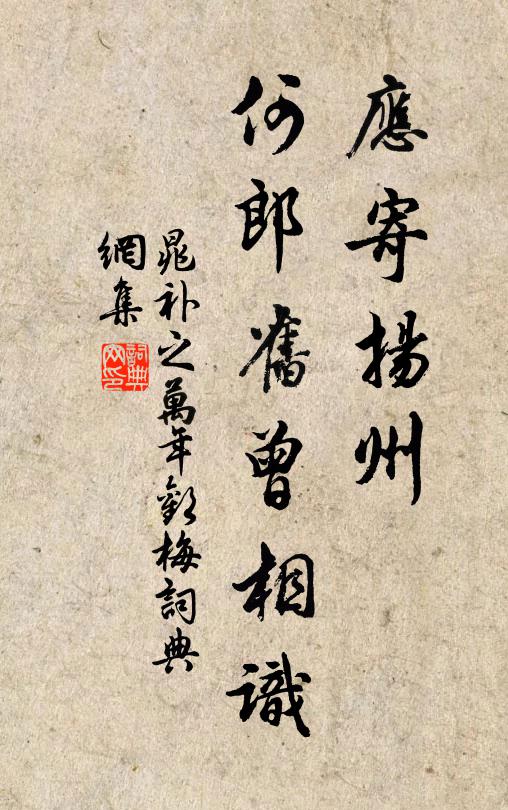 應寄揚州
何郎舊曾相識
晁补之萬年歡梅詞典
網集
詞典
网印